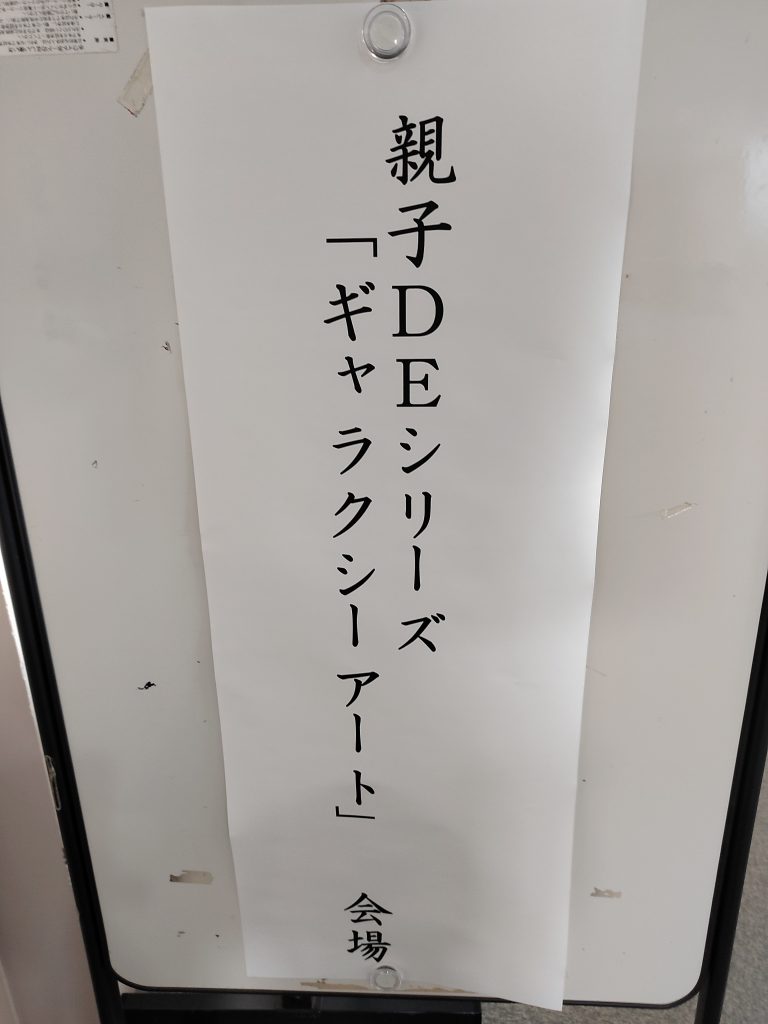 親子DEシリーズ
「ギャラクシーアート」
会場